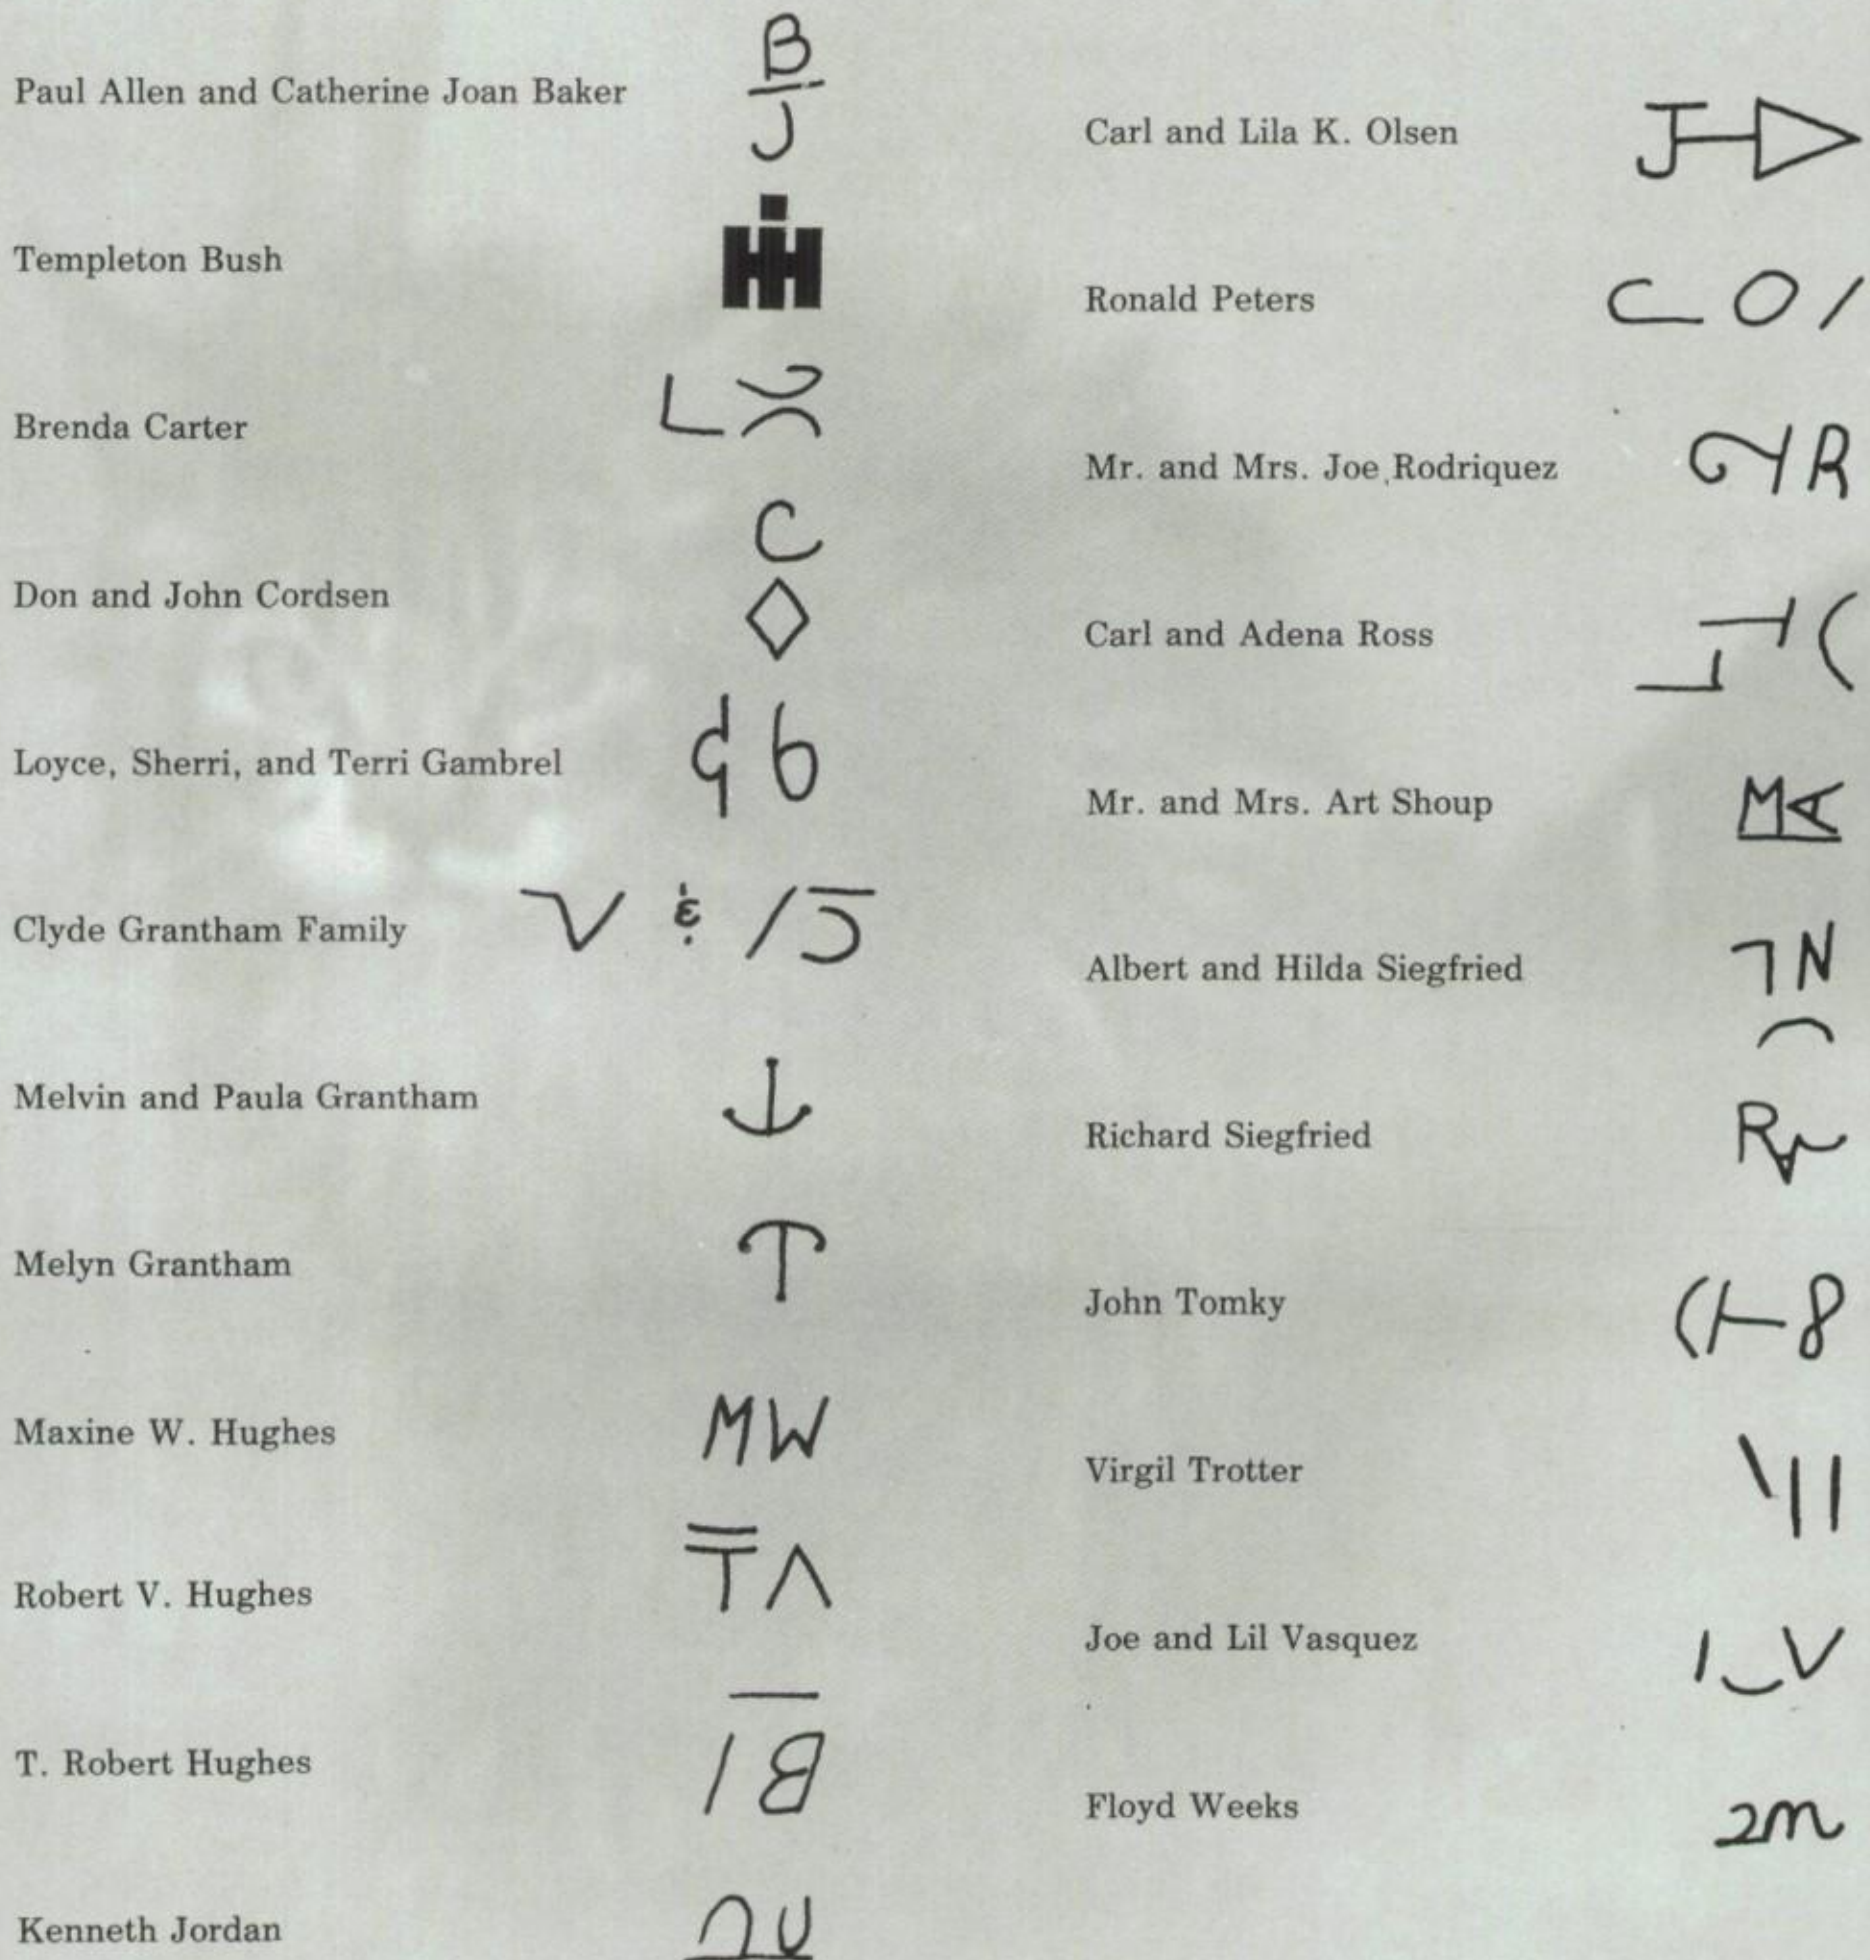 Paul Allen and Catherine Joan Baker
B
J
Templeton Bush
IH
Brenda Carter
Don and John Cordsen
C
Loyce, Sherri, and Terri Gambrel
Clyde Grantham Family
Melvin and Paula Grantham
Melyn Grantham
Maxine W. Hughes MW
Robert V. Hughes
T. Robert Hughes
Kenneth Jordan
Carl and Lila K. Olsen
Ronald Peters
Mr. and Mrs. Joe Rodriquez
Carl and Adena Ross
Mr. and Mrs. Art Shoup
Albert and Hilda Siegfried
Richard Siegfried
John Tomky
Virgil Trotter
Joe and Lil Vasquez
Floyd Weeks 2m